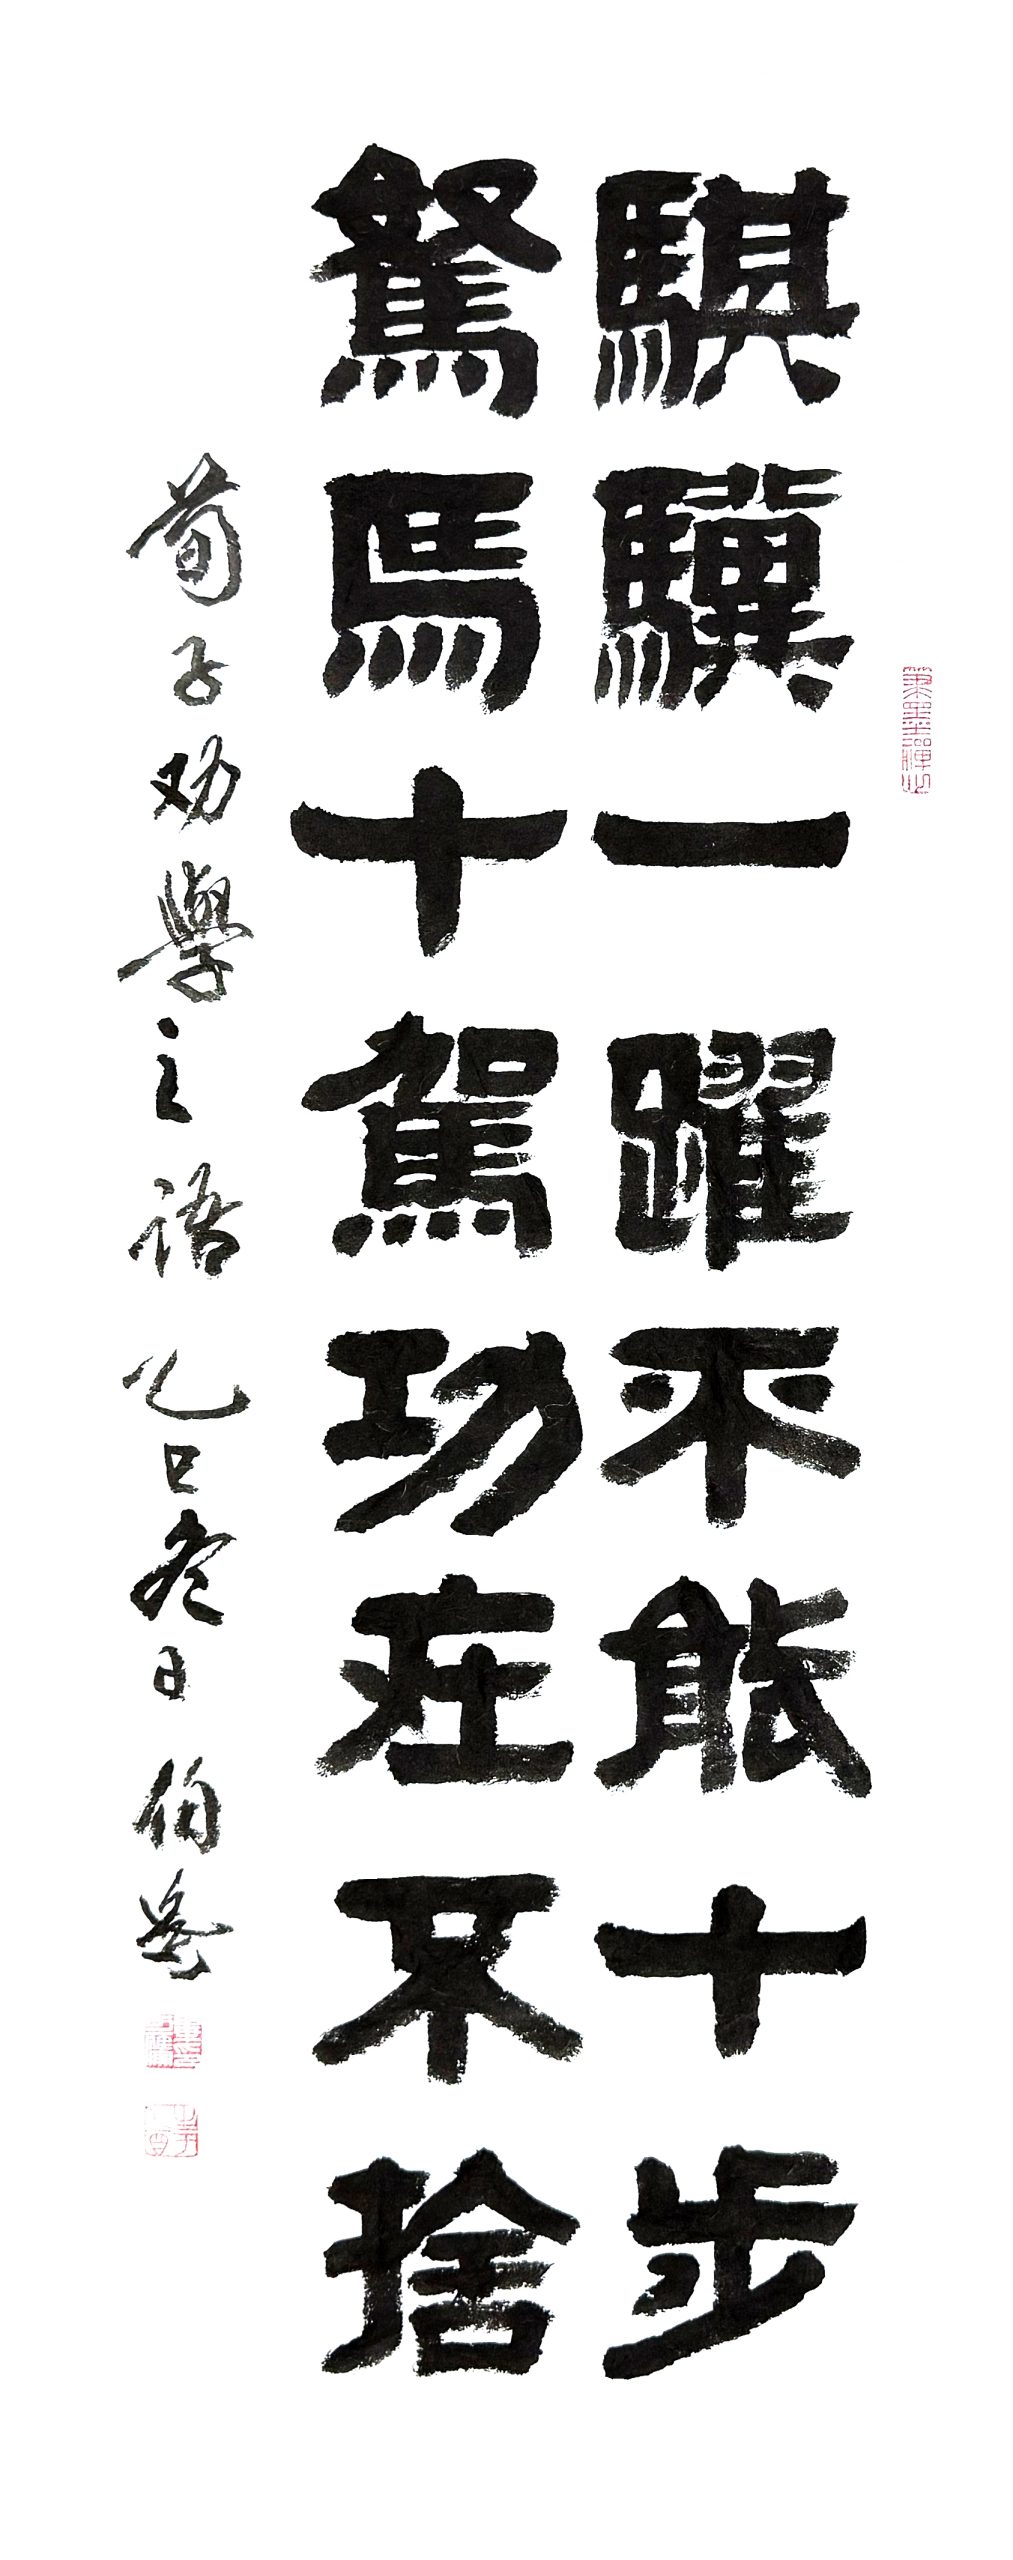 騏驥一躍不能十步
駑馬十駕功在不捨
荀子劝學之語 乙巳冬日 伯岳